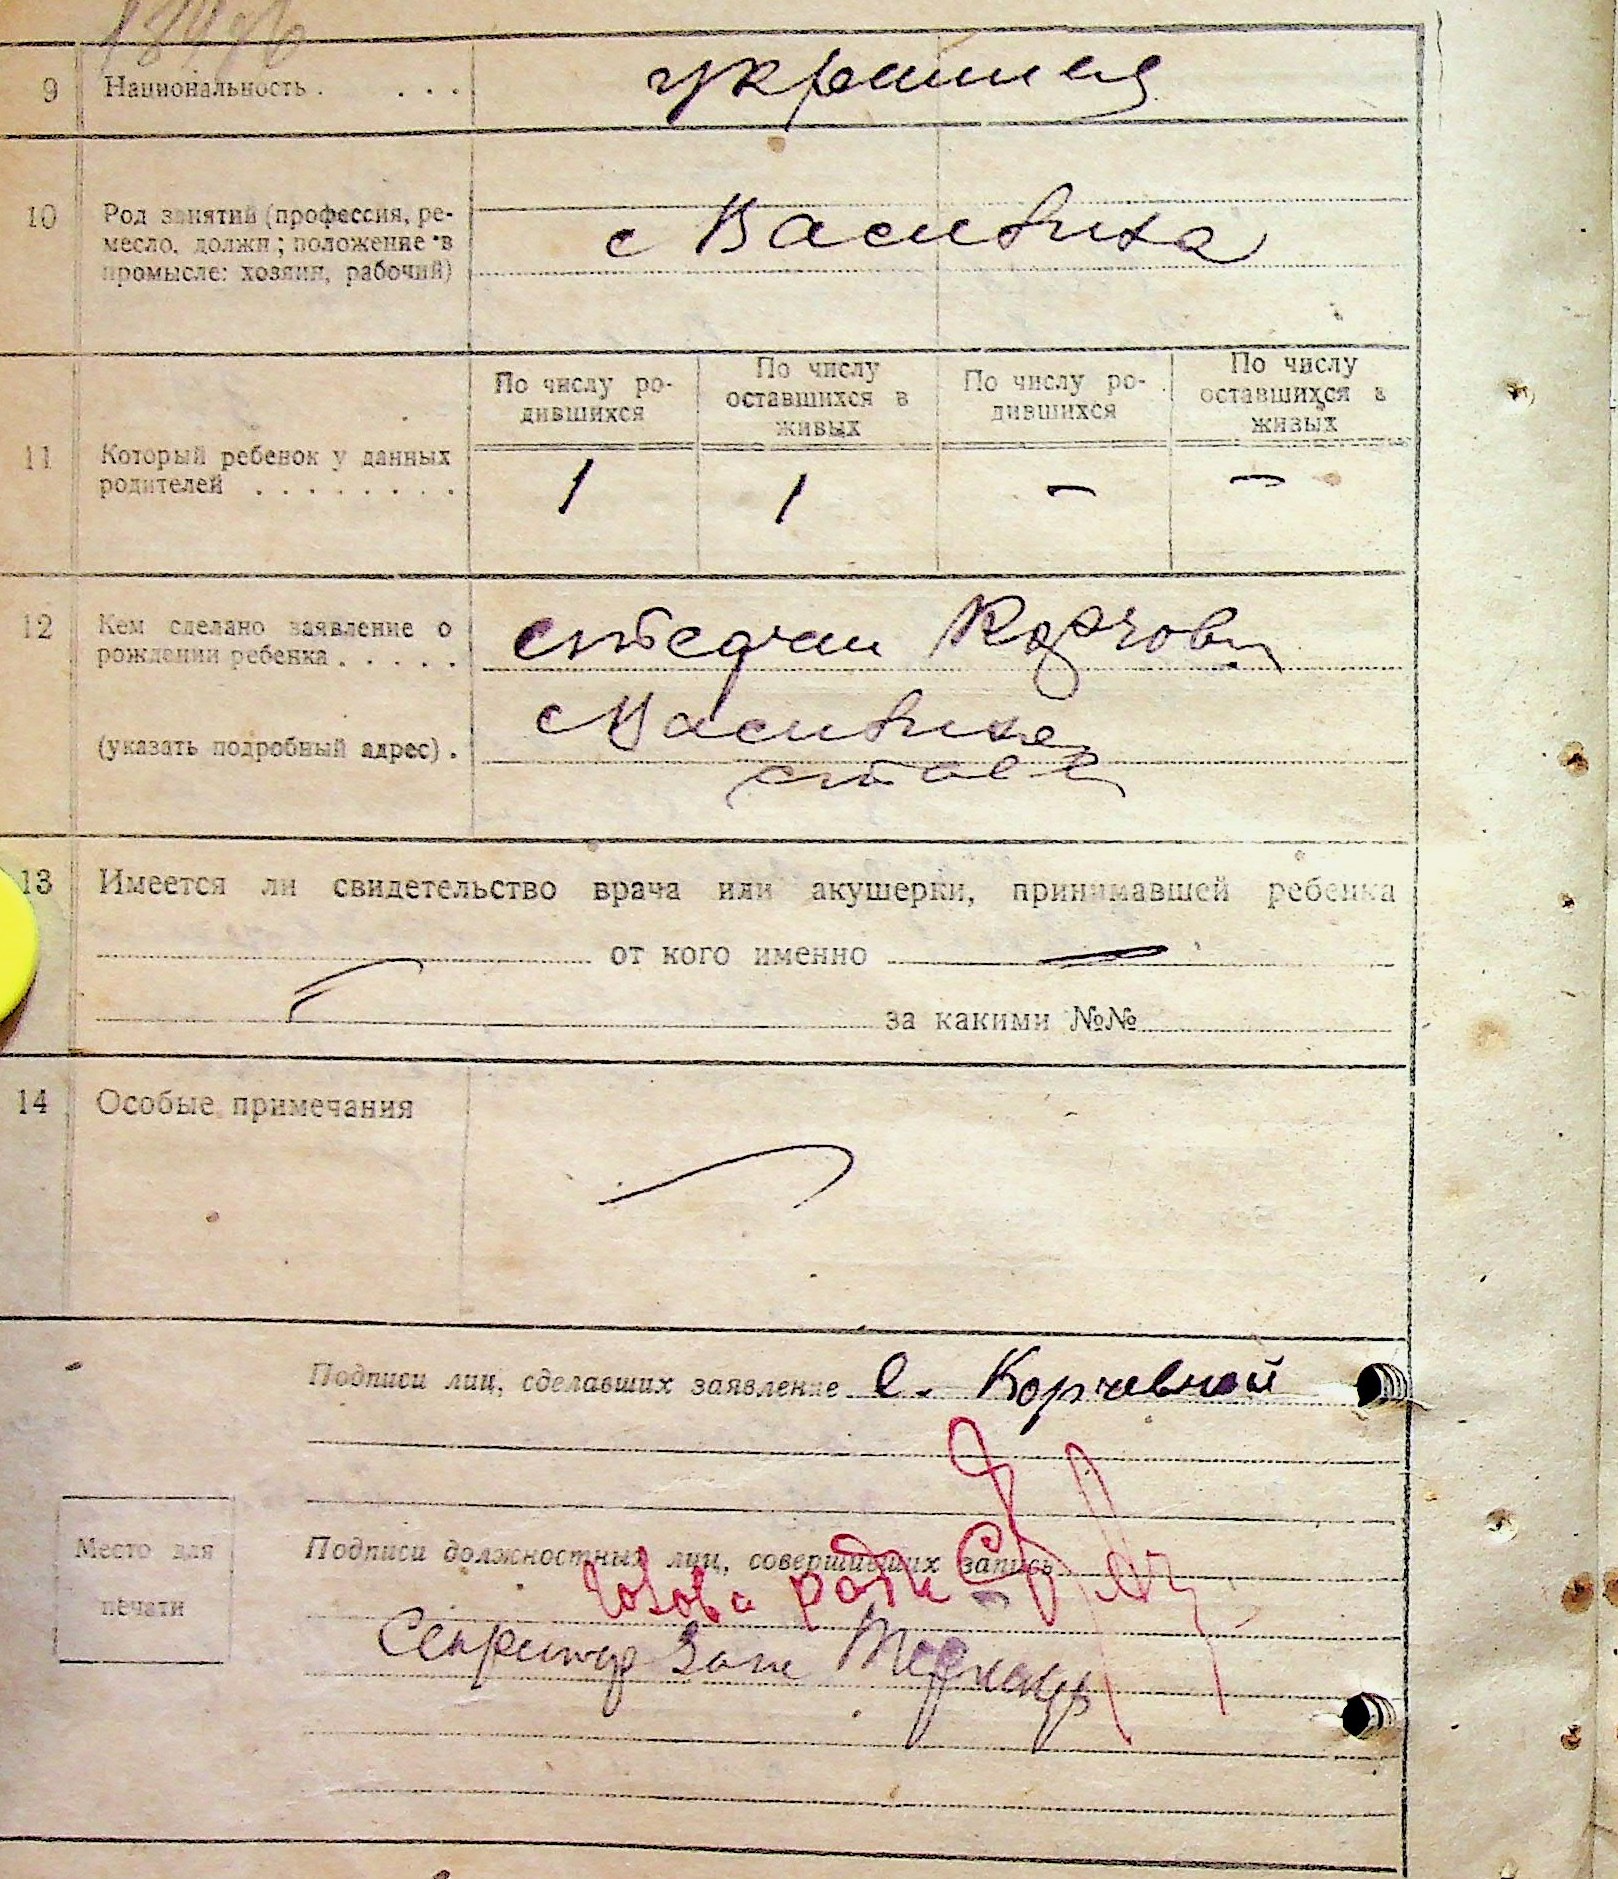 9 Национальность . . . . украинец
10 Род занятий (профессия, ре-
месло, должн; положение в
промысле: хозяин, рабочий)
с Васивиха
По числу ро-
дившихся
По числу
оставшихся в
живых
По числу ро-
дившихся
По числу
оставшихся в
живых
11 Который ребенок у данных
родителей . . . . . . . .
1 1 — —
12 Кем сделано заявление о
рождении ребенка . . . . .
(указать подробный адрес) .
13 Имеется ли свидетельство врача или акушерки, принимавшей ребенка
от кого именно —
за какими №№
14 Особые примечания
Подписи лиц, сделавших заявление Е. Корчевной
Место для
печати
Подписи должностных лиц, совершивших запись
Голова ради
Секретар